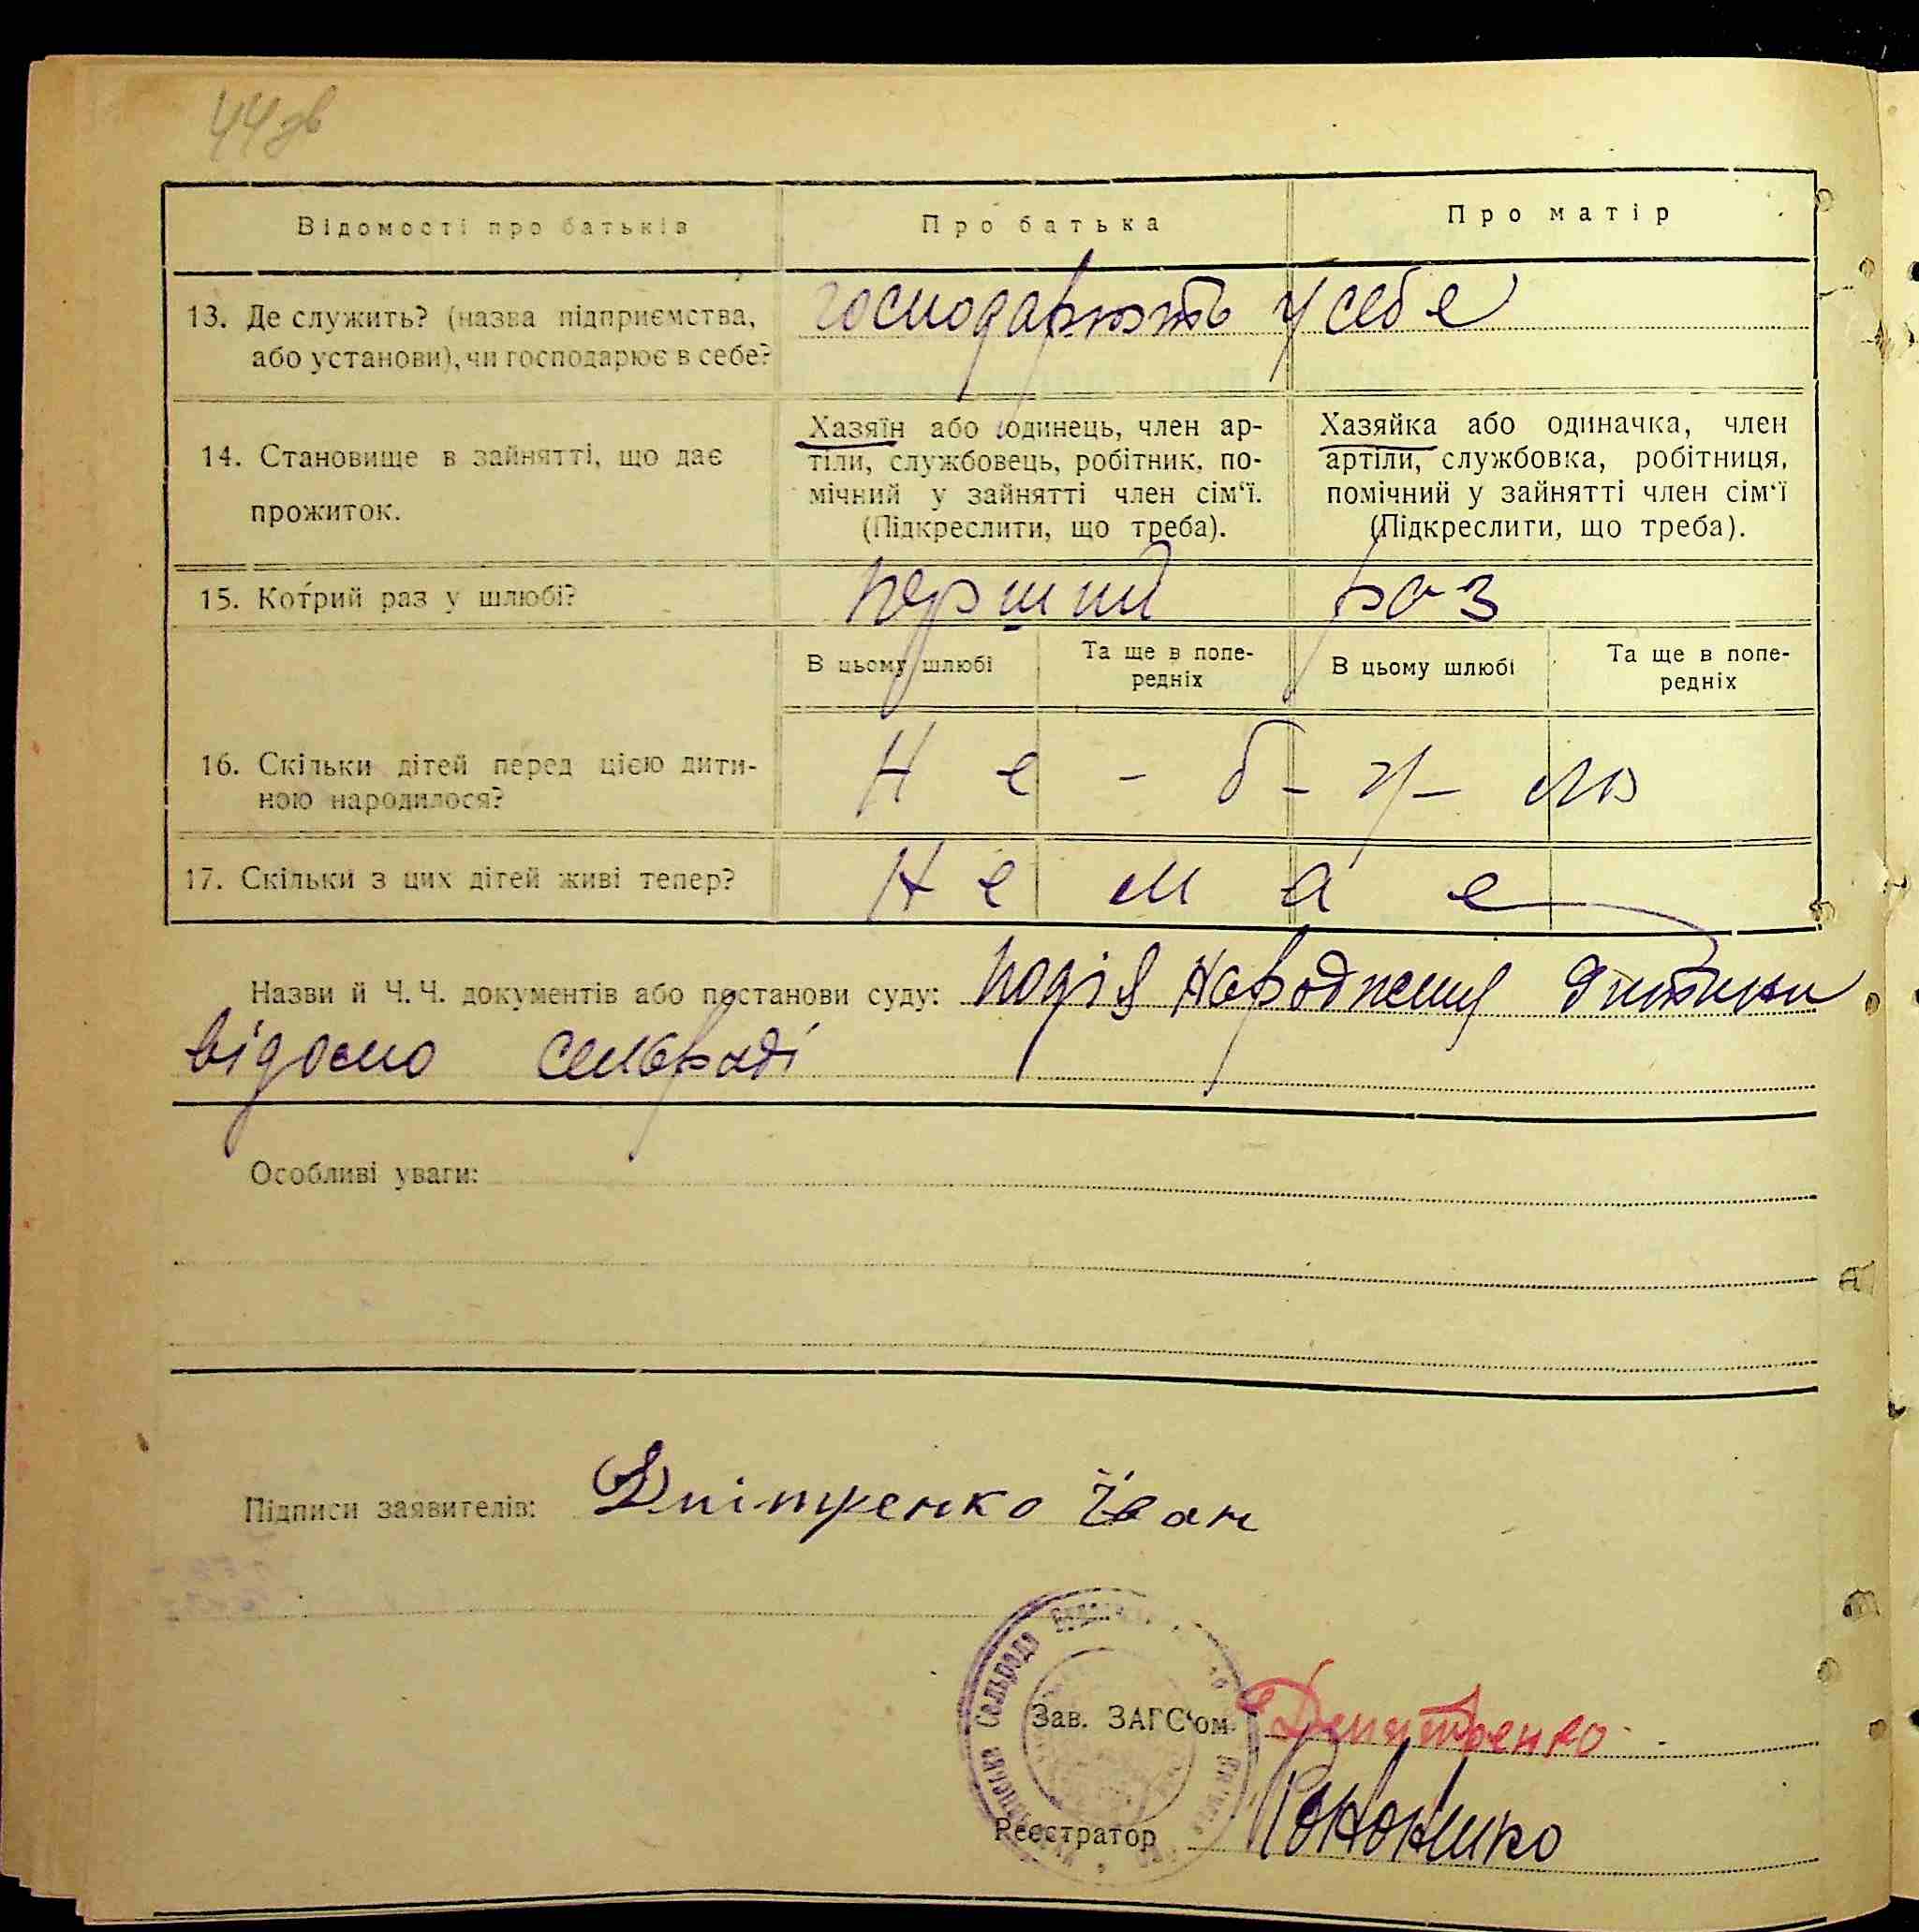 44 зв
Відомості про батьків Про батька Про матір
13. Де служить? (назва підприємства, або установи), чи господарює в себе?
господарюють у себе
14. Становище в зайнятті, що дає прожиток.
Хазяїн або одинець, член ар-
тіли, службовець, робітник, по-
мічний у зайнятті член сім‘ї.
(Підкреслити, що треба).
Хазяйка або одиначка, член
артіли, службовка, робітниця,
помічний у зайнятті член сім‘ї
(Підкреслити, що треба).
15. Котрий раз у шлюбі? перший раз
В цьому шлюбі Та ще в попе- В цьому шлюбі Та ще в попе-
редніх редніх
16. Скільки дітей перед цією дити-
ною народилося? Не - б - у - ло
17. Скільки з цих дітей живі тепер? Не м а е
Назви й Ч. Ч. документів або постанови суду: подія народження дитини
відомо сельраді
Особливі уваги:
Підписи заявителів: Дмітренко Іван
Сельрада
Зав. ЗАГС‘ом Дмитренко
Реєстратор Кононенко